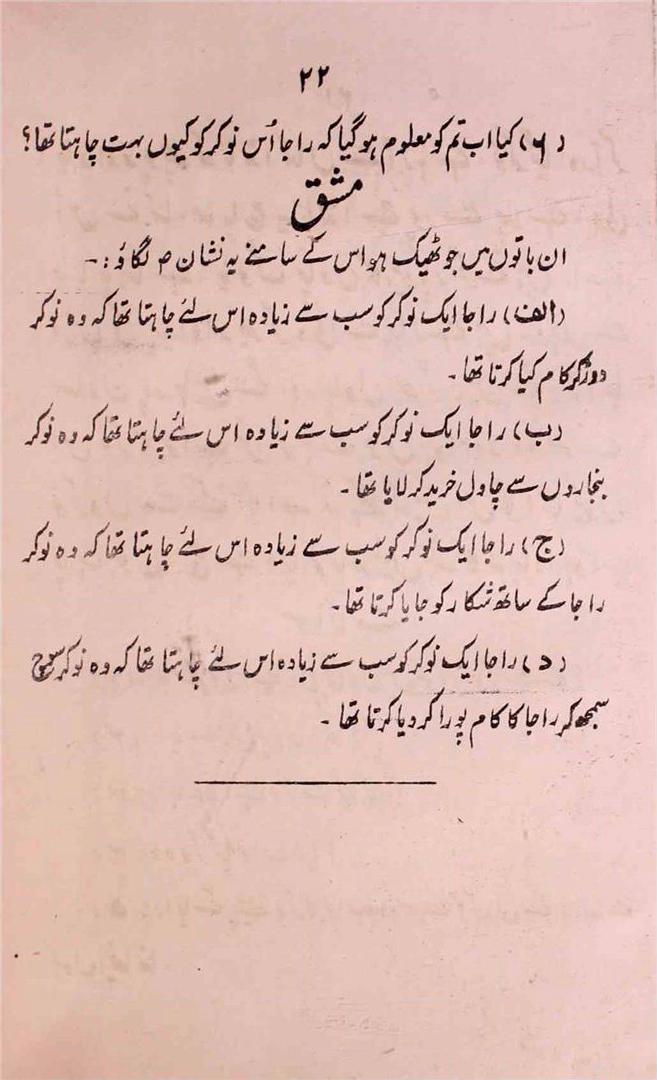 ۲۲
(۶) کیا اب تم کو معلوم ہوگیا کہ راجا اُس نوکر کو کیوں بہت چاہتا تھا؟
مشق
ان باتوں میں جو ٹھیک ہو اس کے سامنے یہ نشان ص لگاؤ :۔
(الف) راجا ایک نوکر کو سب سے زیادہ اس لئے چاہتا تھا کہ وہ نوکر
دوڑ کر کام کیا کرتا تھا۔
(ب) راجا ایک نوکر کو سب سے زیادہ اس لئے چاہتا تھا کہ وہ نوکر
بنجاروں سے چاول خرید کر لایا تھا۔
(ج) راجا ایک نوکر کو سب سے زیادہ اس لئے چاہتا تھا کہ وہ نوکر
راجا کے ساتھ شکار کو جایا کرتا تھا۔
(د) راجا ایک نوکر کو سب سے زیادہ اس لئے چاہتا تھا کہ وہ نوکر سوچ
سمجھ کر راجا کا کام پورا کر دیا کرتا تھا۔